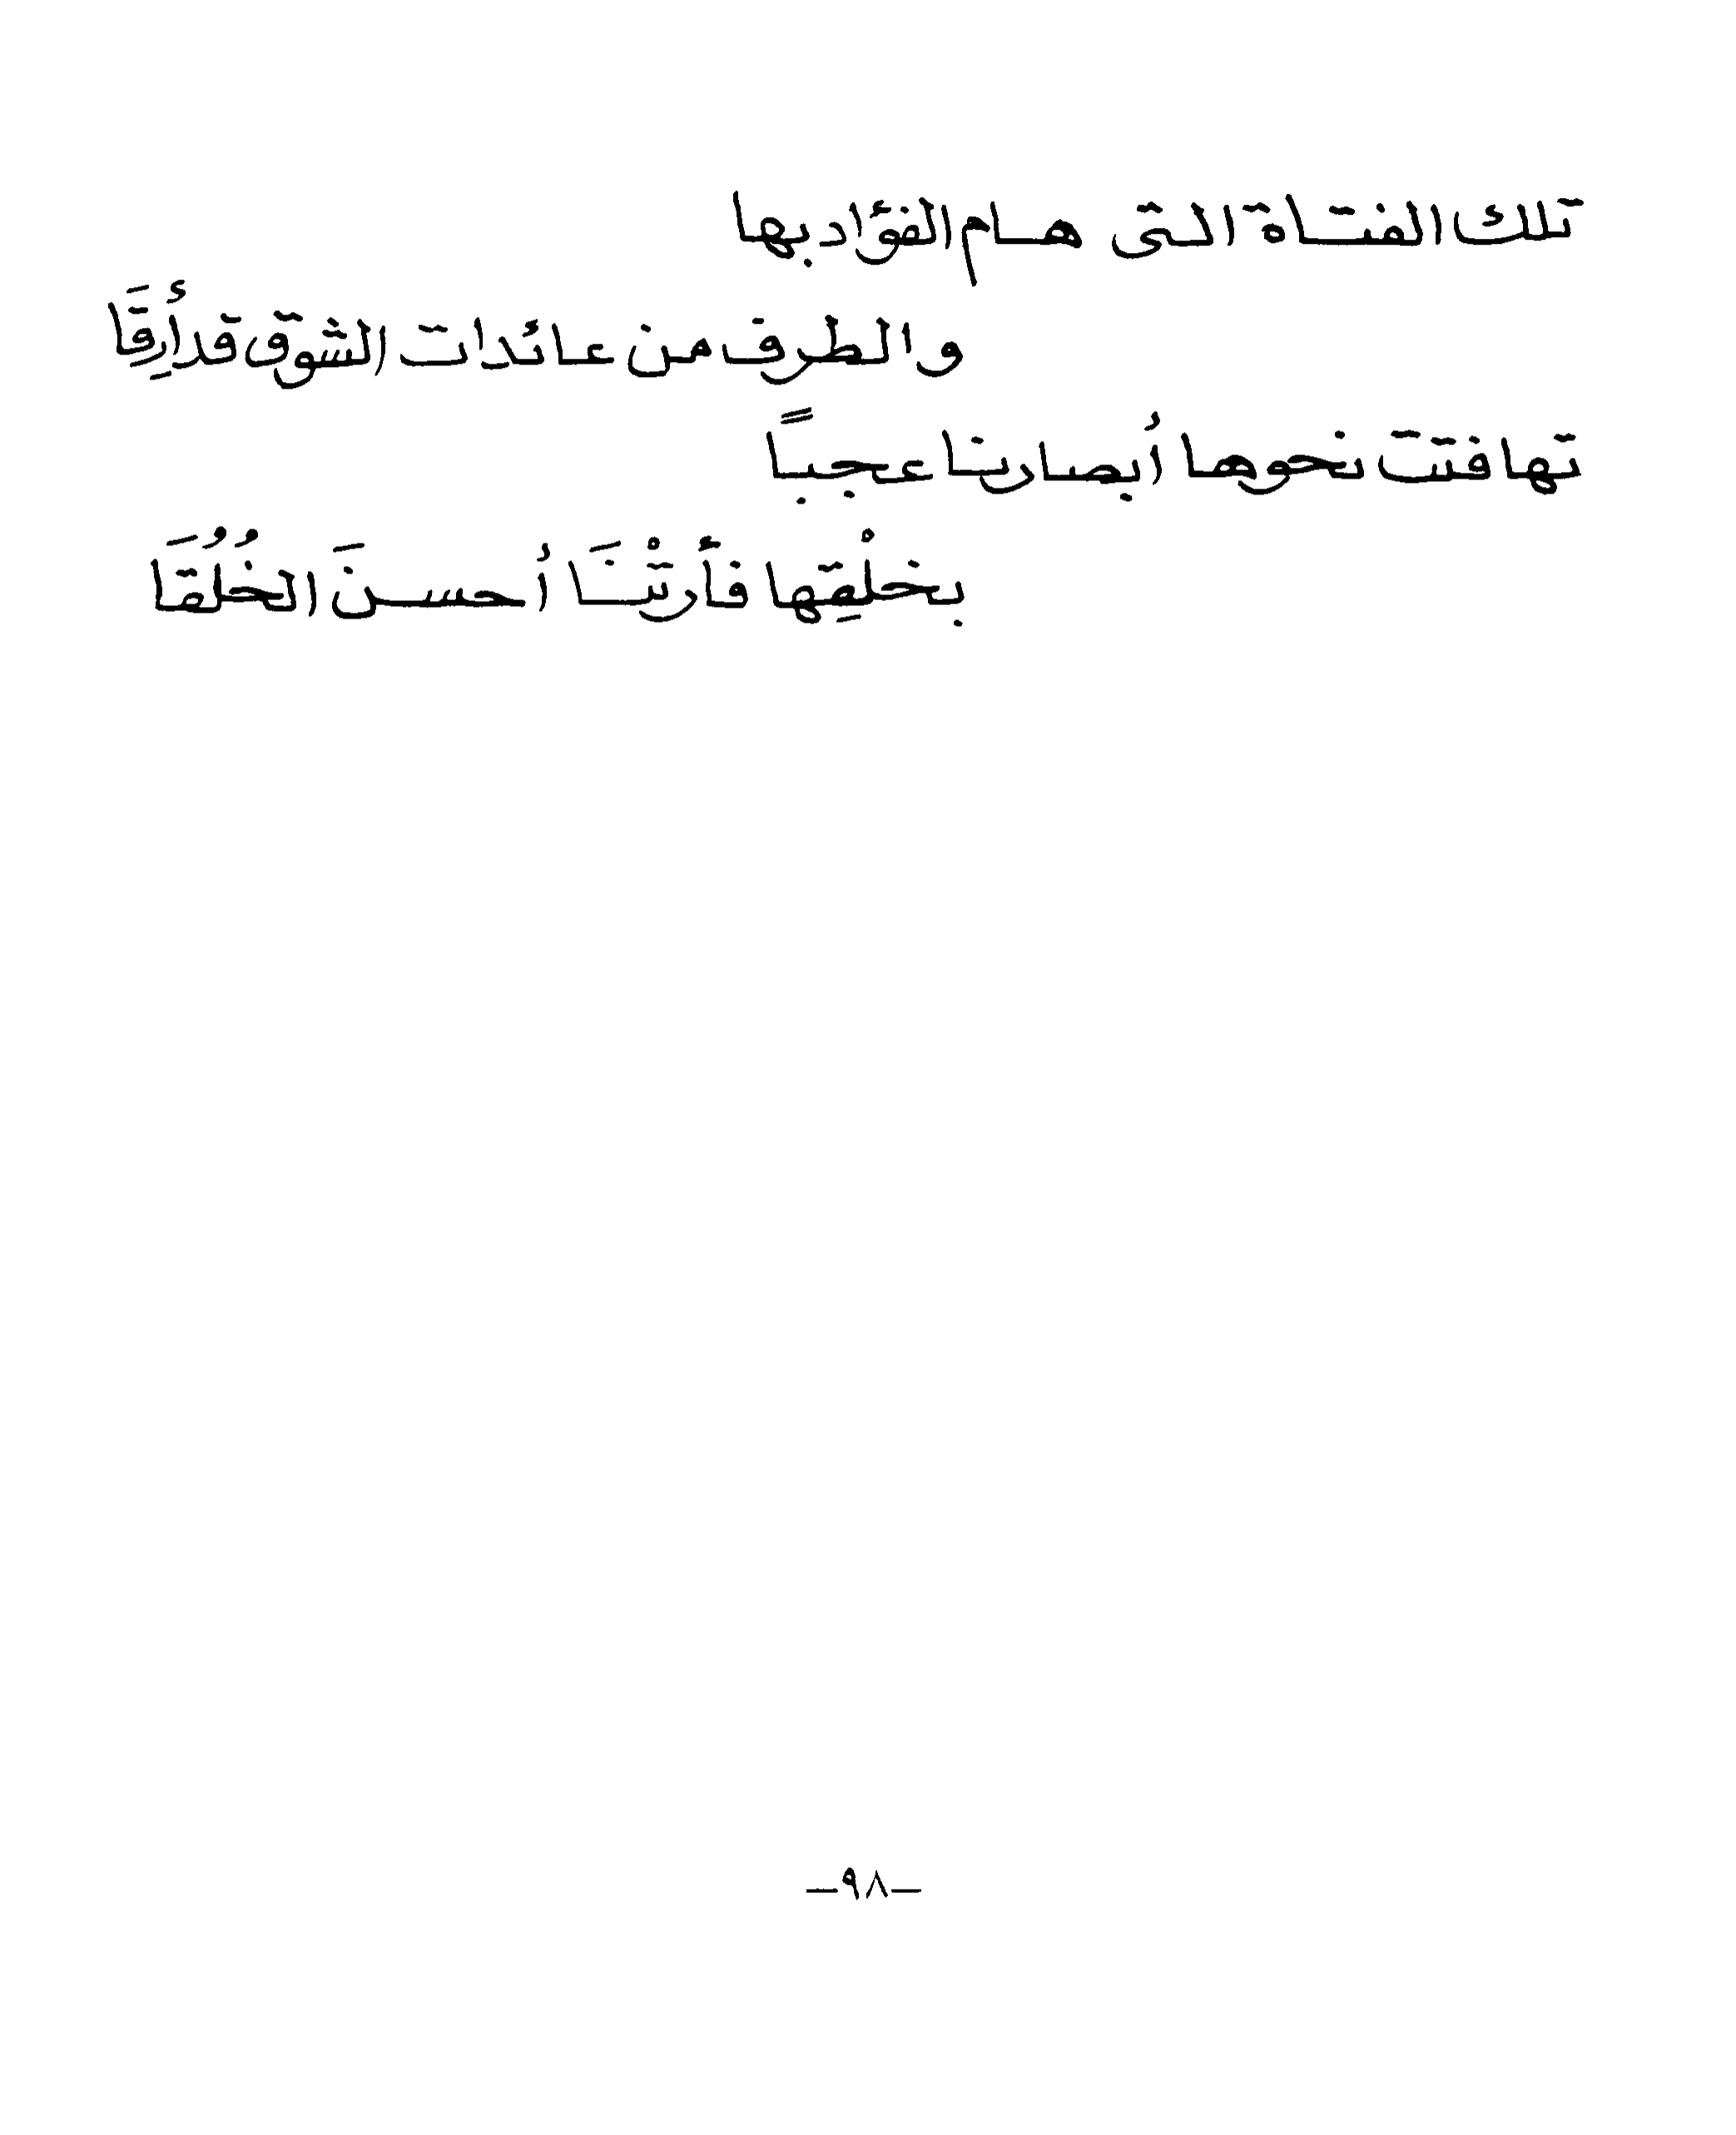 تلك الفتاة التى هام الفؤاد بها
والطرف من عائدات الشوق قد أَرِقَا
تهافتت نحوها أبصارنا عجباً
بخلْقِها فأرتْنَا أحسنَ الخُلُقَا
-٩٨-